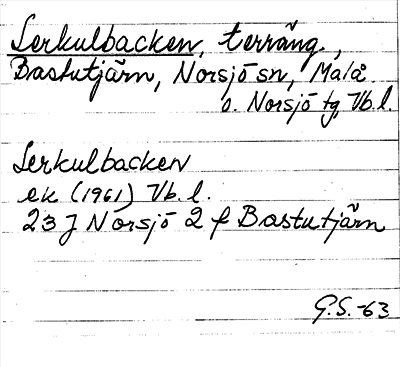 Lerkulbacken, terräng,
Bastutjärn, Norsjö sn, Malå
o. Norsjö tg, Vb.l.
Lerkulbacken
ek (1961) Vb. l.
23 J Norsjö 2 f Bastutjärn
G.S.-63